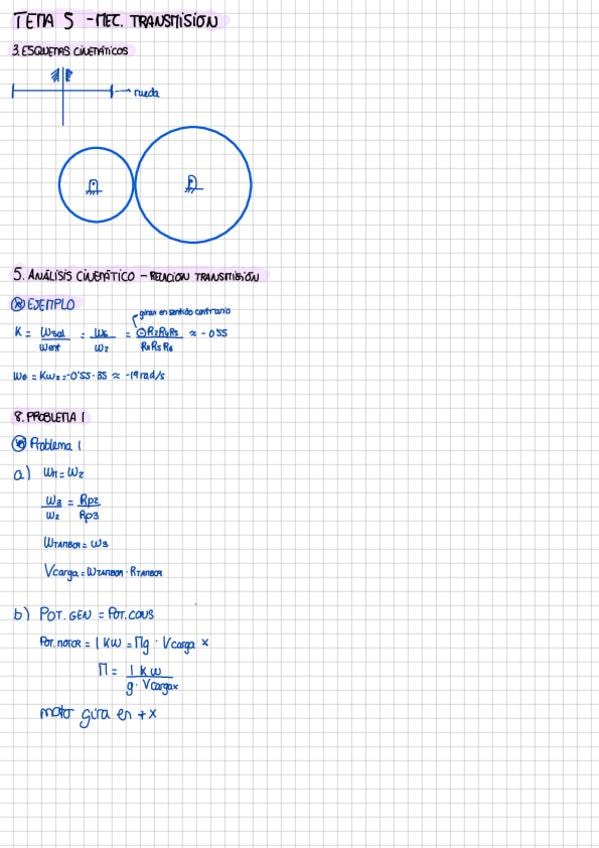 TEMA 5 - MEC. TRANSMISIÓN
3. ESQUEMAS CINEMÁTICOS
rueda
5. ANÁLISIS CINEMÁTICO - RELACIÓN TRANSMISIÓN
EJEMPLO
giran en sentido contrario
K = ωsal/ωent = ω6/ω2 = ⊖R2R4R5/R3R5R6 ≈ -0'55
ω6 = Kω2 = -0'55·35 ≈ -19 rad/s
8. PROBLEMA 1
Problema 1
a) ωM = ω2
ω3/ω2 = Rp2/Rp3
ωTAMBOR = ω3
Vcarga = ωTAMBOR · RTAMBOR
b) POT. GEN = POT. CONS
POT. MOTOR = 1 KW = Mg · Vcarga x
M = 1 KW/g · Vcargax
motor gira en +x